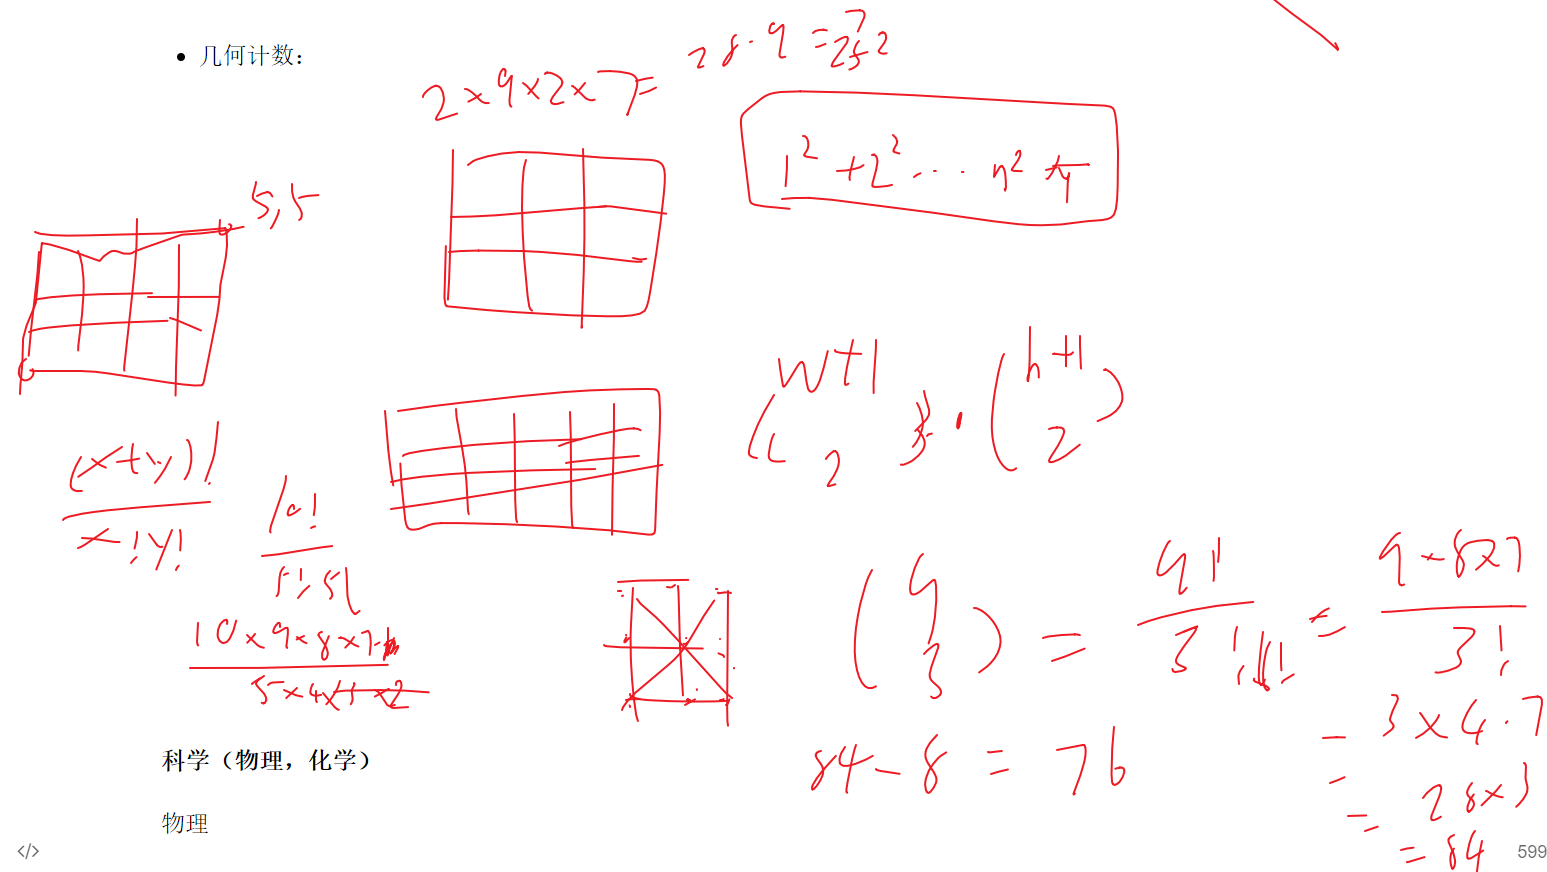 • 几何计数：
2×9×2×7=
28·9 = 252
1² + 2² ... n²
5,5
w+1
2
·
(h+1
2)
(x+y)!
x!y!
10!
5!5!
10×9×8×7
5×4×3×2
(9
3) = 9!
3! = 9×8×7
3!
= 3×4·7
= 28×3
= 84
84-8 = 76
科学（物理，化学）
物理
</> 599